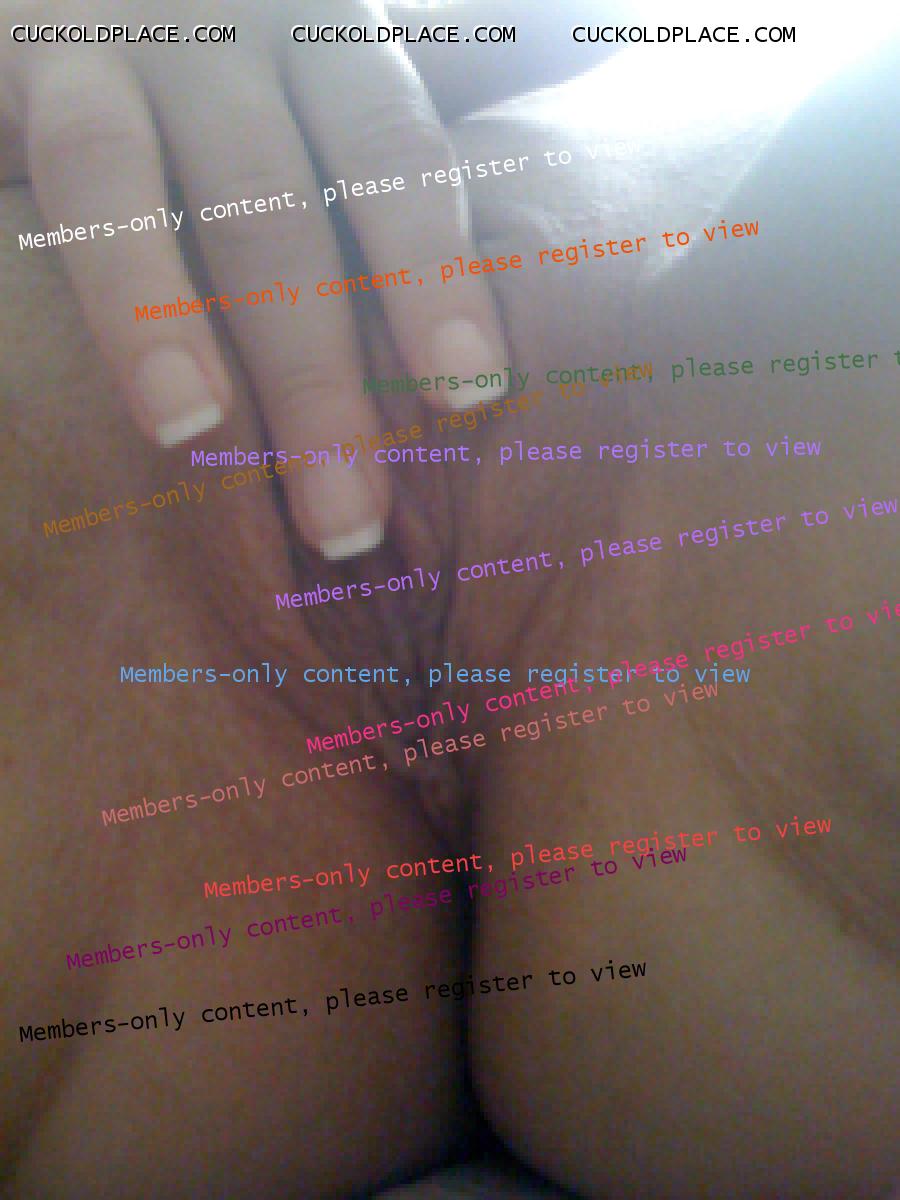 CUCKOLDPLACE.COM CUCKOLDPLACE.COM CUCKOLDPLACE.COM
Members-only content, please register to view
Members-only content, please register to view
Members-only content, please register t
Members-only content, please register to view
Members-only content, please register to view
Members-only content, please register to view
Members-only content, please register to view
Members-only content, please register to vie
Members-only content, please register to view
Members-only content, please register to view
Members-only content, please register to view
Members-only content, please register to view